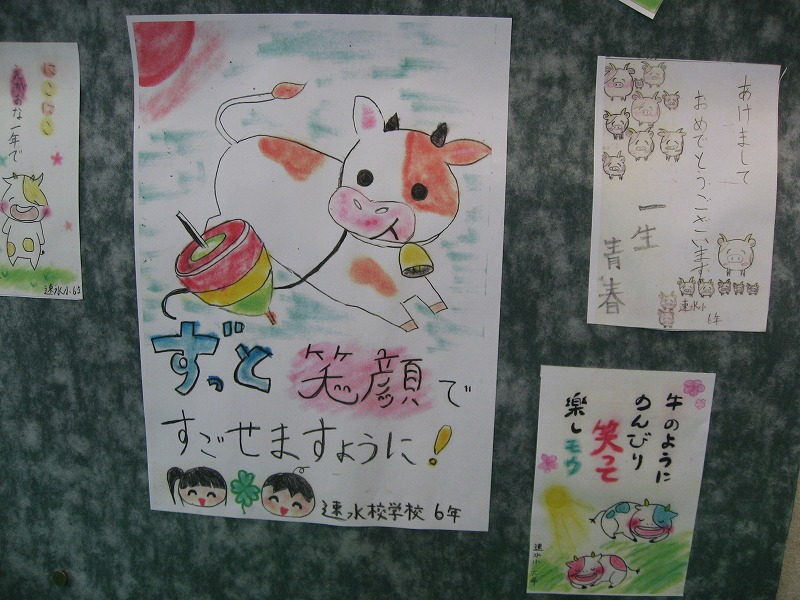 にこにこ
えがおな一年で
速水小6年
ずっと笑顔で
すごせますように!
速水校学校 6年
あけまして
おめでとうございます
一生
青春
速水小
6年
牛のように
のんびり
笑って
楽しモウ
速水小 六年